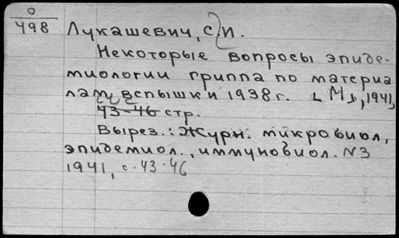 0
498
Лукашевич, С. И.
Некоторые вопросы эпиде-
миологии гриппа по материа
лам вспышки 1938 г. [М], 1941,
43-46 стр.
Вырез.: Журн. микробиол,
эпидемиол., иммунобиол. N3
1941, с. 43-46